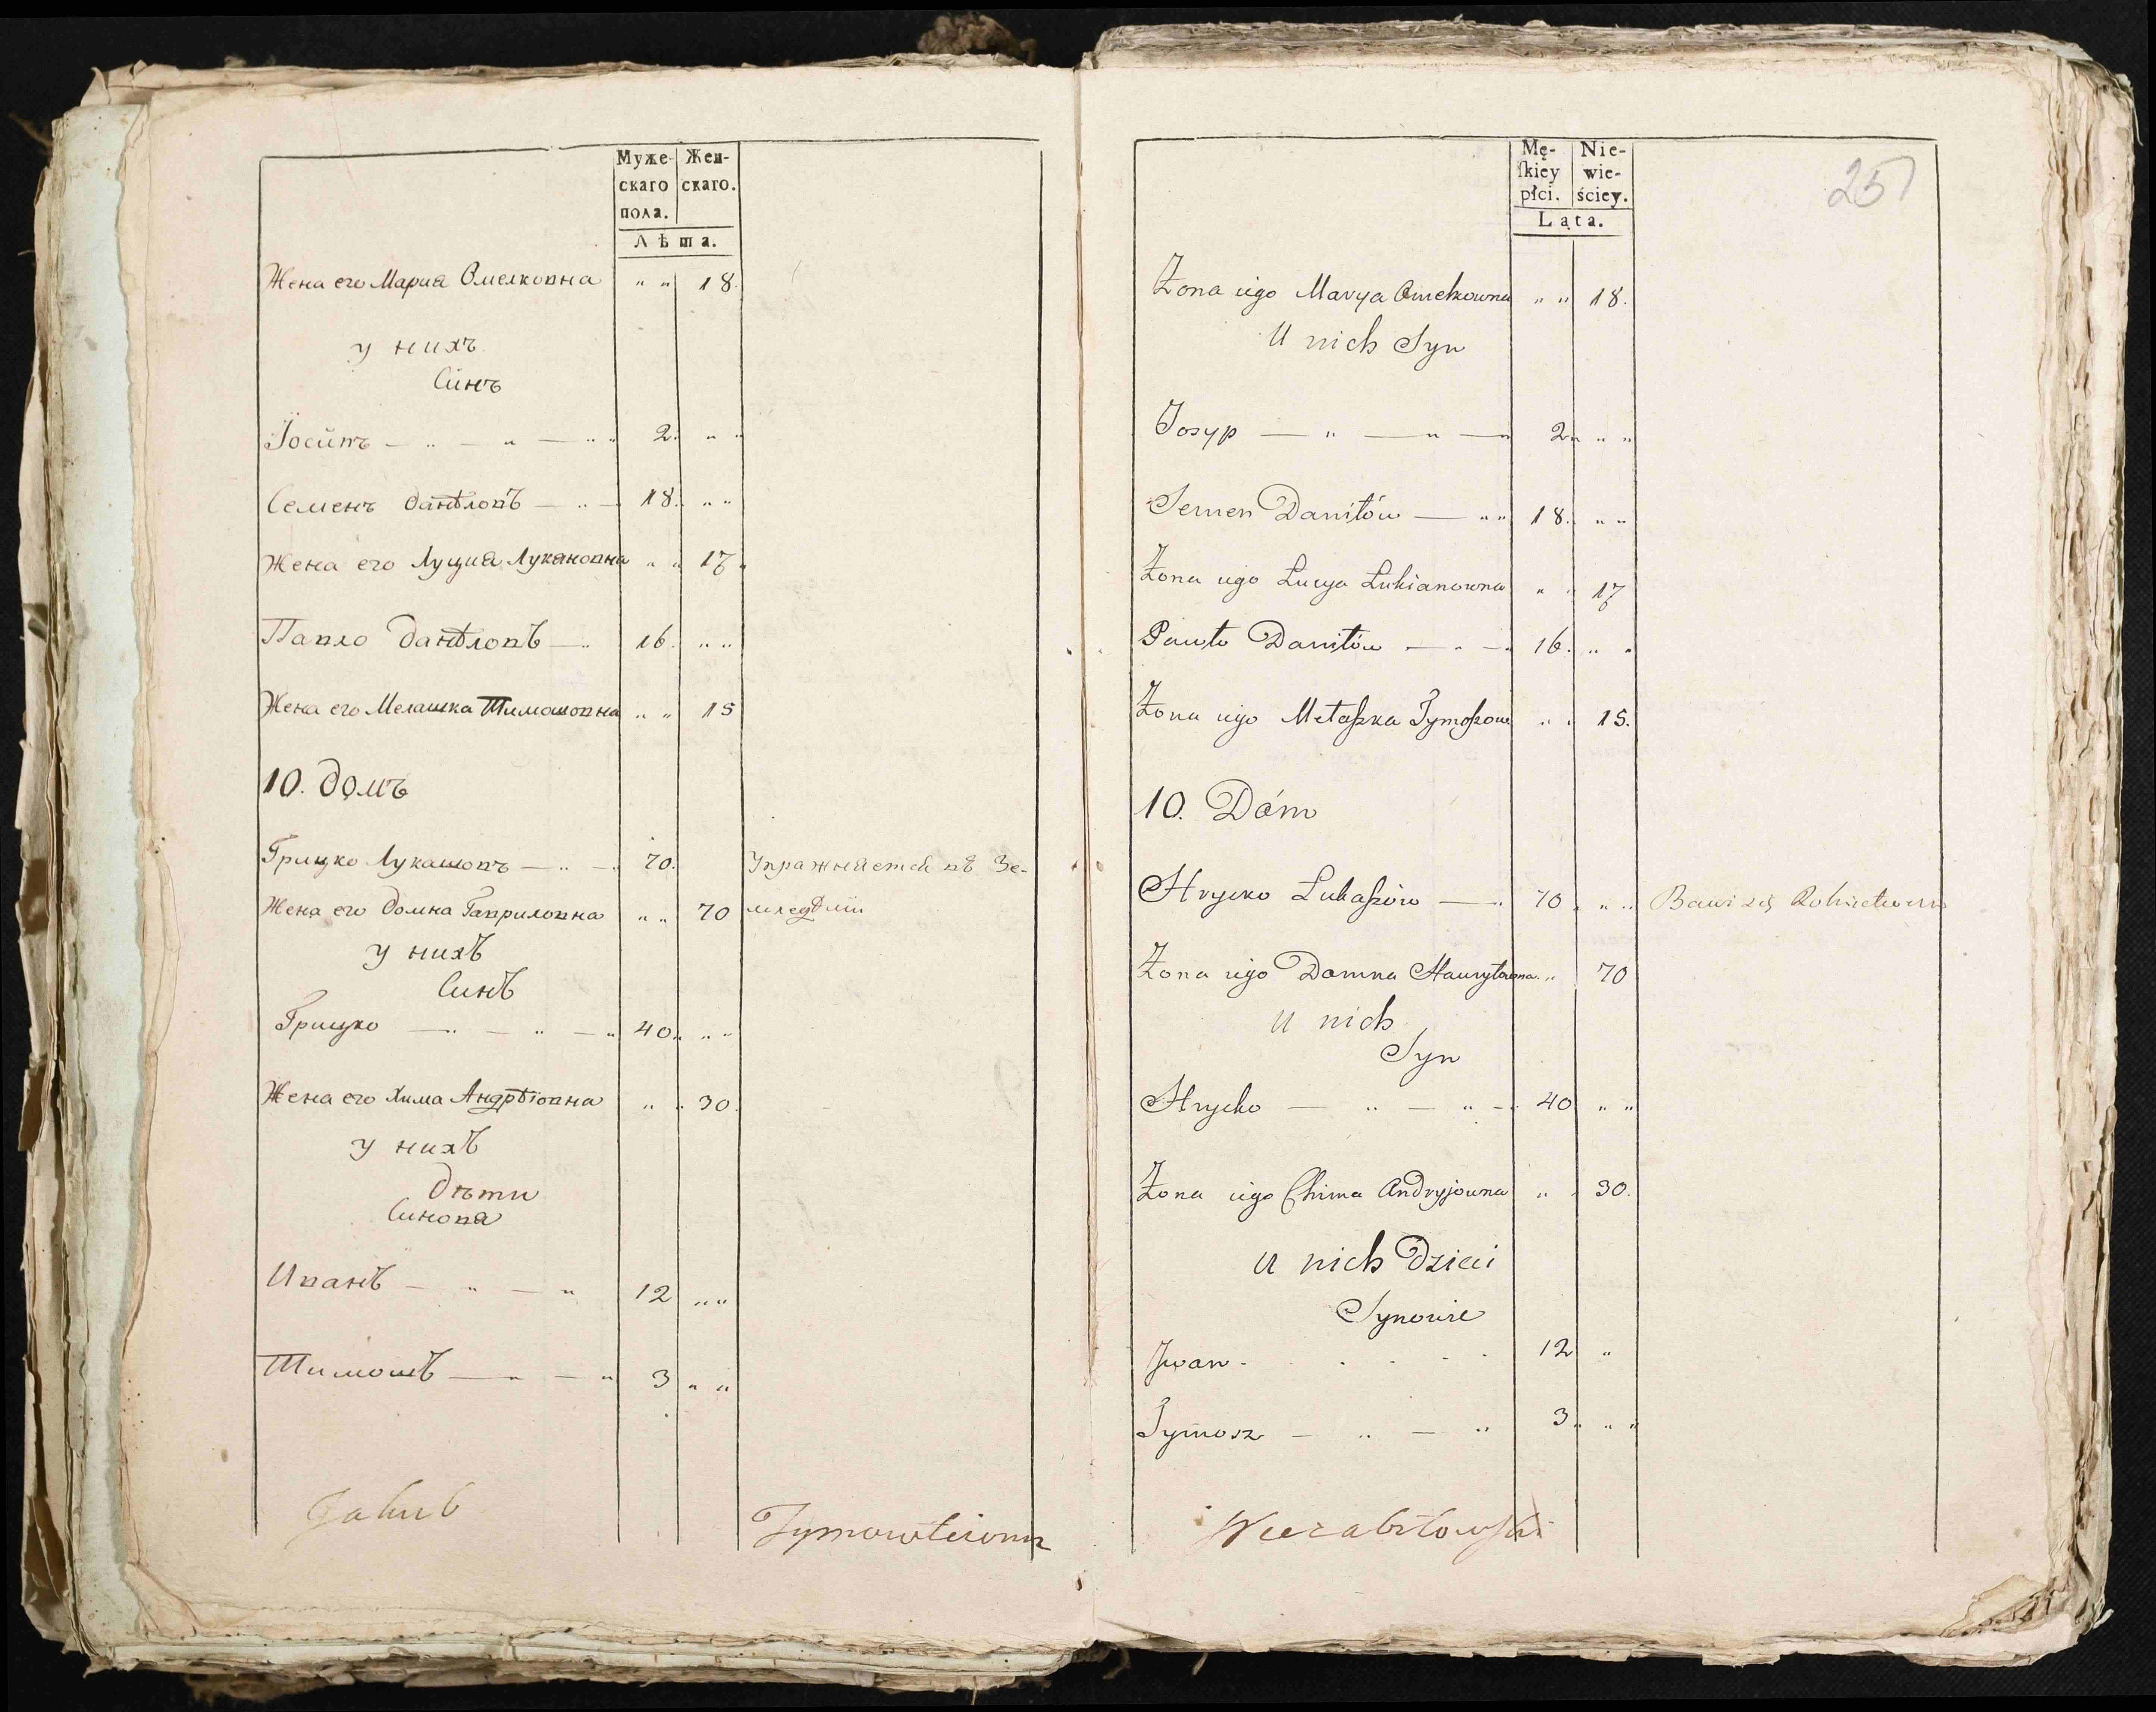 Муже- Жен-
скаго скаго.
пола.
Лѣта.
Жена его Мариа Омелковна " " 18.
у нихъ
Синъ
Іосипъ — " — " — " " 2. " "
Семенъ данѣловъ — " — 18. " "
Жена его Луциа Лукановна " " 17 "
Павло данѣловъ — " 16. " "
Жена его Мелашка Тимошовна " " 15
10. домъ
Грицко Лукашовъ — " — " 70. Упражняется въ Зе-
Жена его домна Гавриловна " " 70 мледѣліи
у нихъ
Синъ
Грицко — " — " — " 40. " "
Жена его Хима Андрѣіовна " " 30.
у нихъ
дѣти
Синова
Иванъ — " — " 12 " "
Тимошъ — " — " 3 " "
Jakub
Mę- Nie-
ſkiey wie-
płci. ściey.
Ląta.
251
Zona iego Marya Omelkowna " " 18.
U nich Syn
Josyp — " — " — " 2 " " "
Semen Daniłów — " " 18. " "
Zona iego Łucya Łukianowna " " 17
Pawło Daniłów — " — " 16. " "
Zona iego Mełaszka Tymoszow " " 15.
10. Dóm
Hrycko Łukaszów — " 70 " " " Bawi się Rolnictwem
Zona iego Domna Hawryłowna " " 70
U nich
Syn
Hrycko — " — " — " 40 " "
Zona iego Chima Andryjowna " " 30.
U nich Dzieci
Synowie
Jwan - - - - - 12 "
Tymosz — " — " 3 " " "